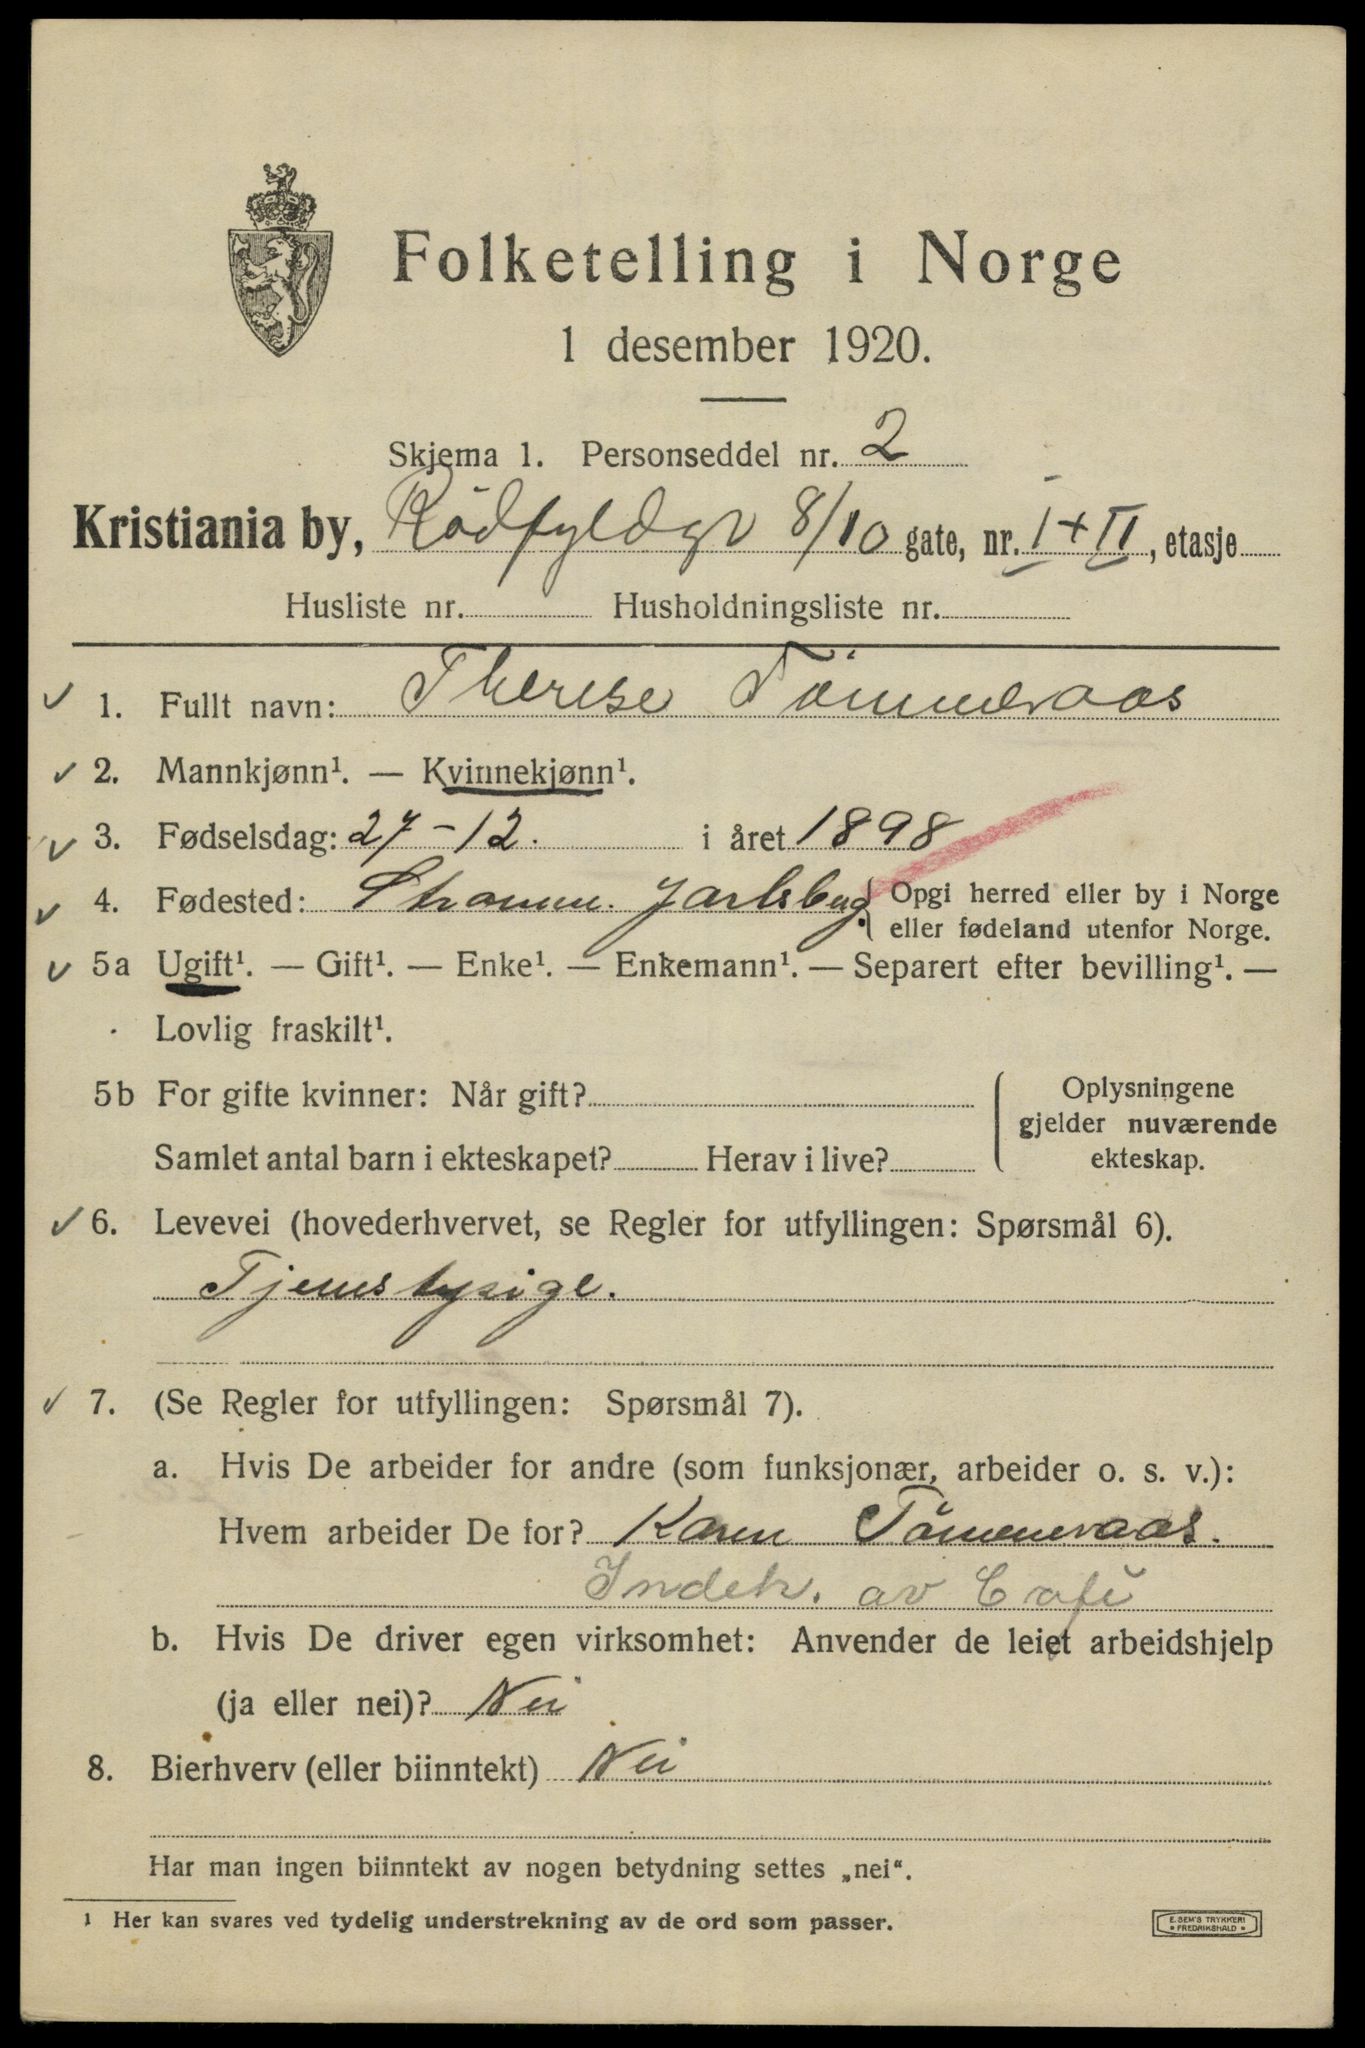 Folketelling i Norge
1 desember 1920.
Skjema 1. Personseddel nr. 2
Kristiania by, Rödfyldgt 8/10 gate, nr. I + II, etasje
Husliste nr. Husholdningsliste nr.
1. Fullt navn: Therese Tömmeraas
2. Mannkjønn¹. — Kvinnekjønn¹.
3. Fødselsdag: 27-12. i året 1898
4. Fødested: Strømm. Jarlsberg. Opgi herred eller by i Norge
eller fødeland utenfor Norge.
5a Ugift¹. — Gift¹. — Enke¹. — Enkemann¹. — Separert efter bevilling¹. —
Lovlig fraskilt¹.
5b For gifte kvinner: Når gift? Oplysningene
gjelder nuværende
Samlet antal barn i ekteskapet? Herav i live? ekteskap.
6. Levevei (hovederhvervet, se Regler for utfyllingen: Spørsmål 6).
Tjenstepige.
7. (Se Regler for utfyllingen: Spørsmål 7).
a. Hvis De arbeider for andre (som funksjonær, arbeider o. s. v.):
Hvem arbeider De for? Karen Tömmeraas.
Indeh. av Café
b. Hvis De driver egen virksomhet: Anvender de leiet arbeidshjelp
(ja eller nei)? Nei
8. Bierhverv (eller biinntekt) Nei
Har man ingen biinntekt av nogen betydning settes „nei“.
1 Her kan svares ved tydelig understrekning av de ord som passer.
E. SEM'S TRYKKERI
• FREDRIKSHALD •